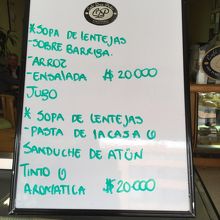 *SOPA DE LENTEJAS
-SOBREBARRIGA
-ARROZ
-ENSALADA $20.000
JUGO
* SOPA DE LENTEJAS
-PASTA DE LA CASA Ó
SANDUCHE DE ATÚN
TINTO Ó
AROMATICA $20.000